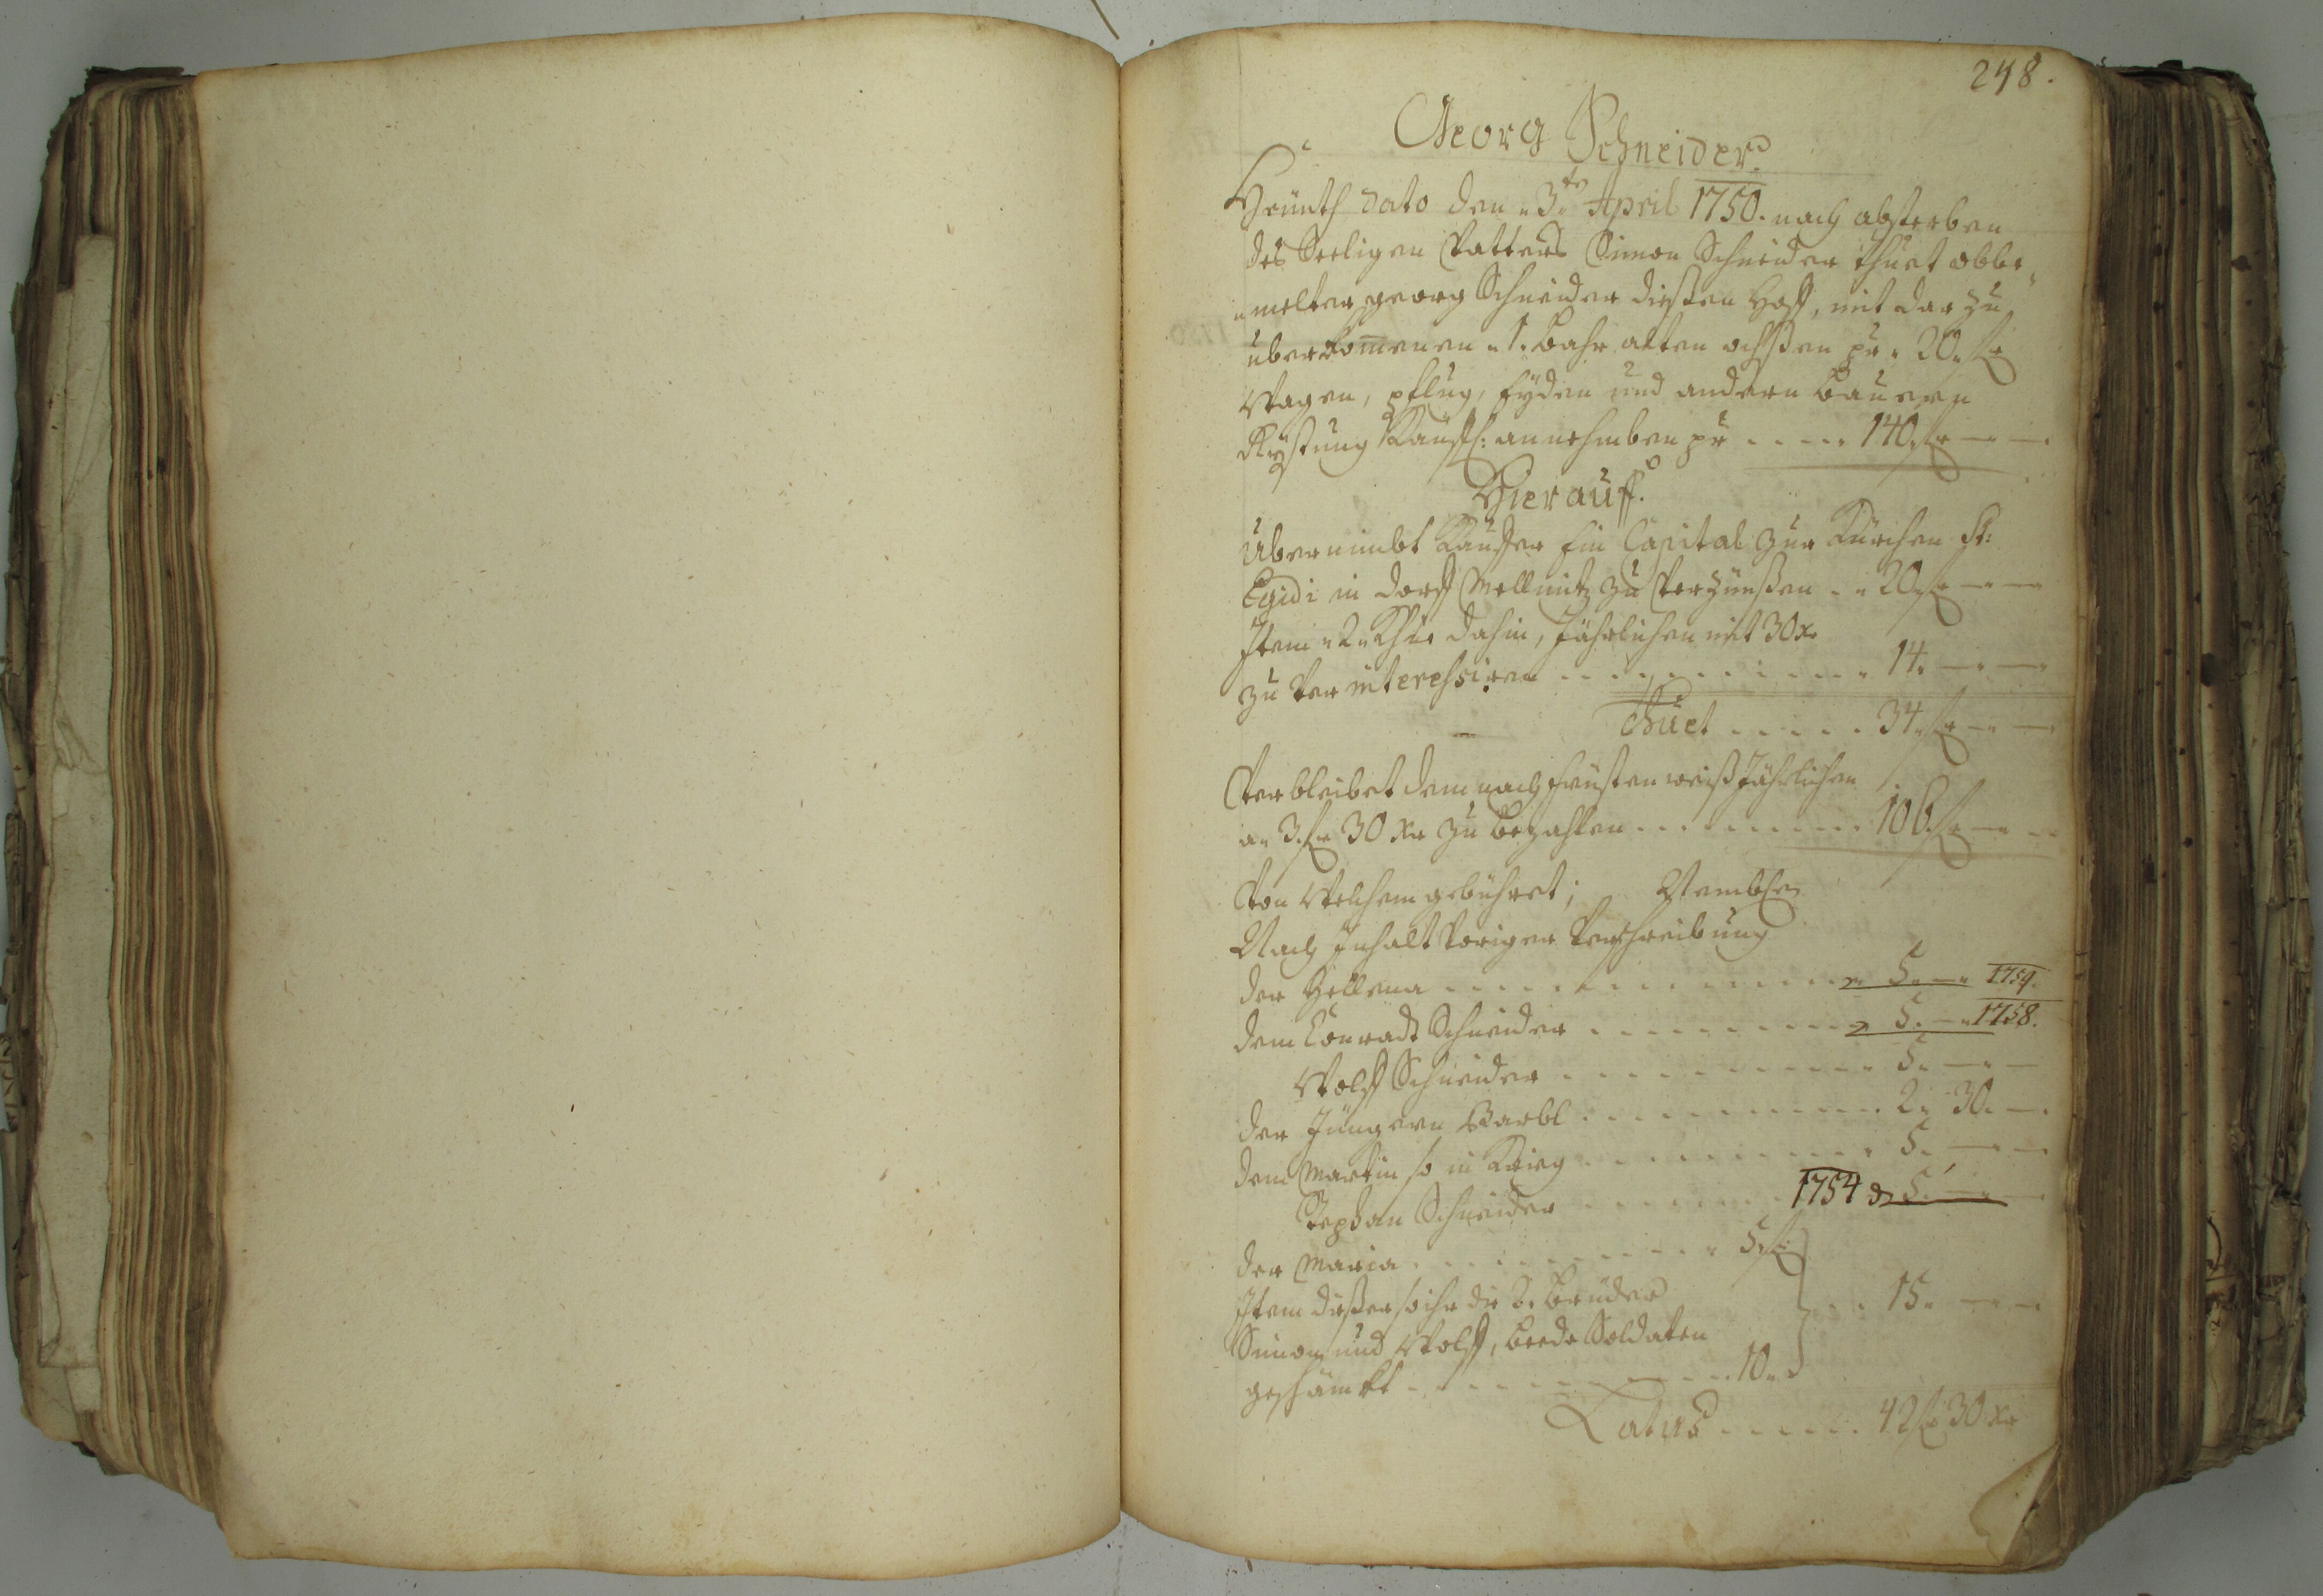 248.
Georg Schneider.
Heünth dato den 3te April 1750. nach absterben
des Seeligen Vatters Simon Schneider thuet obbe„
„melter georg Schneider dießen Hoff, mit darzu
überkomenen „1. Bahr alten ochßen pr „20„ fl
Wagen, pflug, Eyden und andern Bauern
Rystung Käuffl: annehmben pr ..... 140„ fl — —
Hierauff.
Übernimbt Käuffer Ein Capital zur Kürchen St:
Egidi in dorff Mellnitz zu Verzünßen .. 20„ fl — —
Item „2„ Khüe dahin, Jährlichen mit 30 xr
zu Verinteressiren ........... 14„ — —
Thuet ..... 34„ fl — —
Verbleibet demnach fristen weiß Jährlichen
a„ 3„ fl 30 xr zu bezahlen ......... 106„ fl — —
Von Welchem gebühret; Nemblen
Nach Inhalt Voriger Verschreibung
der Hellena ............... 5„ — „ 1759.
dem Conradt Schneider .......... 5. — „ 1758.
Wolff Schneider ............ 5. — —
der Jüngern Barbl .......... 2„ 30. —
dem Martin so in Krieg ........... 5. — —
Stephan Schneider ....... 1754 5. — —
der Maria ........... 5„ fl
Item dießer so ihr die 2. Brüder
Simon und Wolff, beede Soldaten ... 15„ — —
geschänkt ............ 10„
Latus ...... 42 fl 30 xr